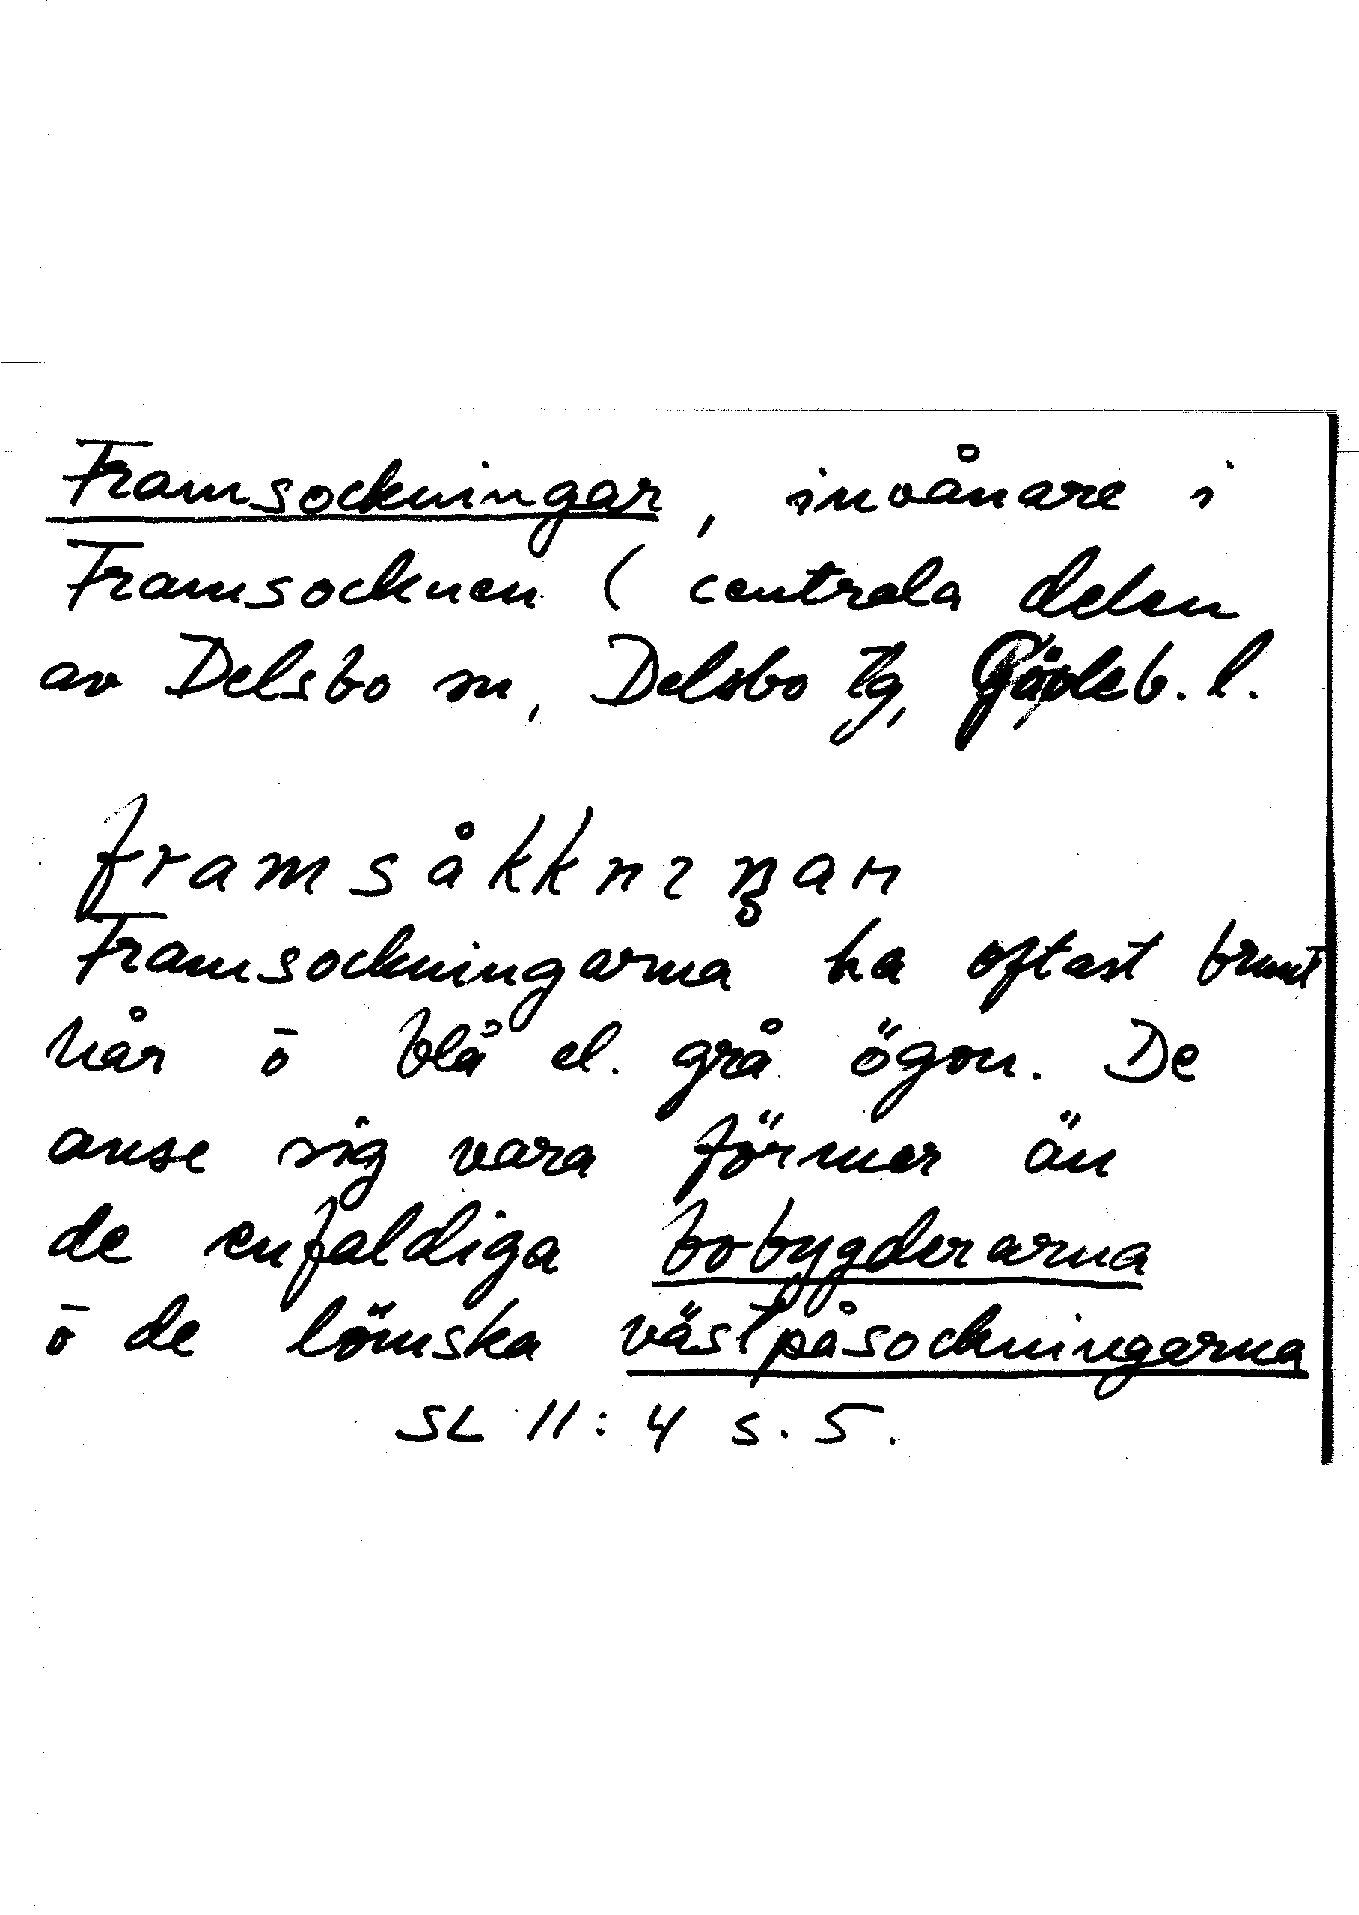 Framsockningar, invånare i
Framsocknen (centrala delen
av Delsbo sn, Delsbo tg, Gävleb. l.
framsåkknıŋar
Framsockningarna ha oftast brunt
hår ō blå el. grå ögon. De
anse sig vara förmer än
de enfaldiga bobygderarna
ō de lömska västpåsockningarna
SL 11:4 s. 5.